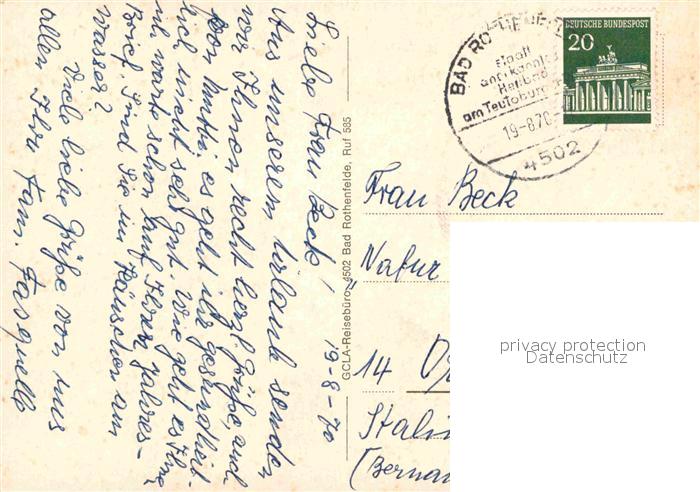 Liebe Frau Beck! 19-8-70
Aus unserem Urlaub senden
wir Ihnen recht herzl. Grüße, auch
von Mutti, es geht ihr gesundheit-
lich nicht sehr gut. Wie geht es Ihnen,
ich warte schon auf Ihren
Brief. Sind Sie im am
Wasser?
Viele liebe Grüße von uns
allen Ihre Fam.
GCLA-Reisebüro, 4502 Bad Rothenfelde, Ruf 585
BAD RO
staatl
anerkanntes
Heilbad
am Teutoburg
19-8.70
4502
DEUTSCHE BUNDESPOST
20
Frau Beck
"Natur
14
Stalin
(Bernau
privacy protection
Datenschutz